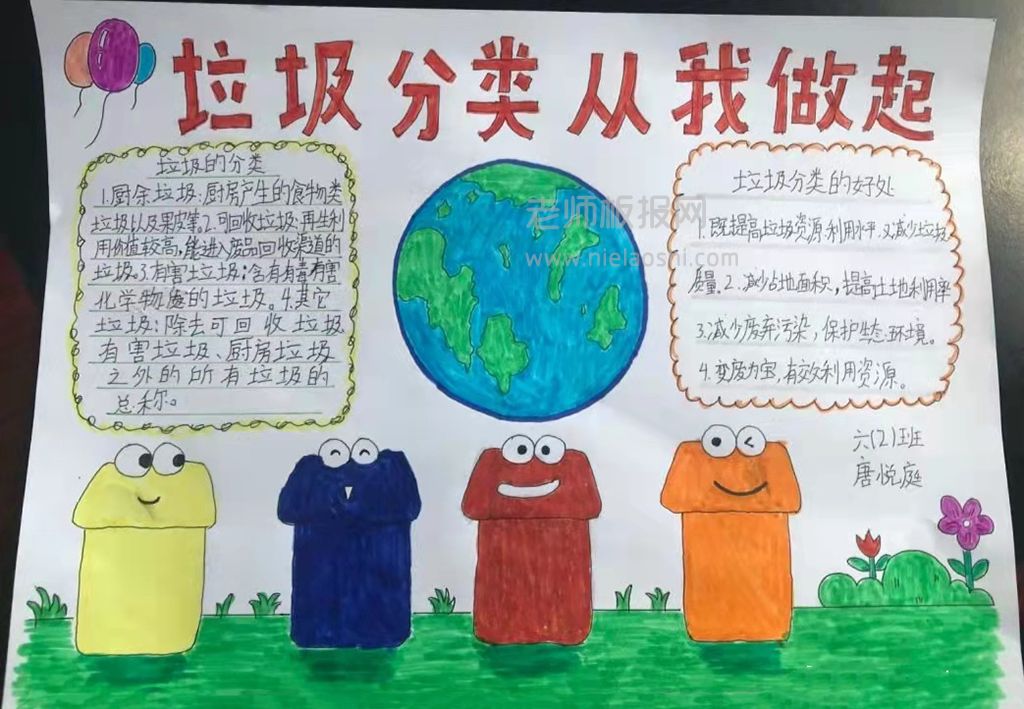 垃圾分类从我做起
垃圾的分类
1.厨余垃圾:厨房产生的食物类
垃圾以及果皮等2.可回收垃圾:再生利
用价值较高,能进入废品回收渠道的
垃圾。3.有害垃圾:含有有毒有害
化学物质的垃圾。4.其它
垃圾:除去可回收垃圾
有害垃圾、厨房垃圾
之外的所有垃圾的
总称。
老师板报网
www.nielaoshi.com
垃圾分类的好处
1.既提高垃圾资源利用水平,又减少垃圾
质量。2.减少占地面积,提高土地利用率
3.减少废弃污染,保护生态环境。
4.变废为宝,有效利用资源。
六(2)班
唐悦庭